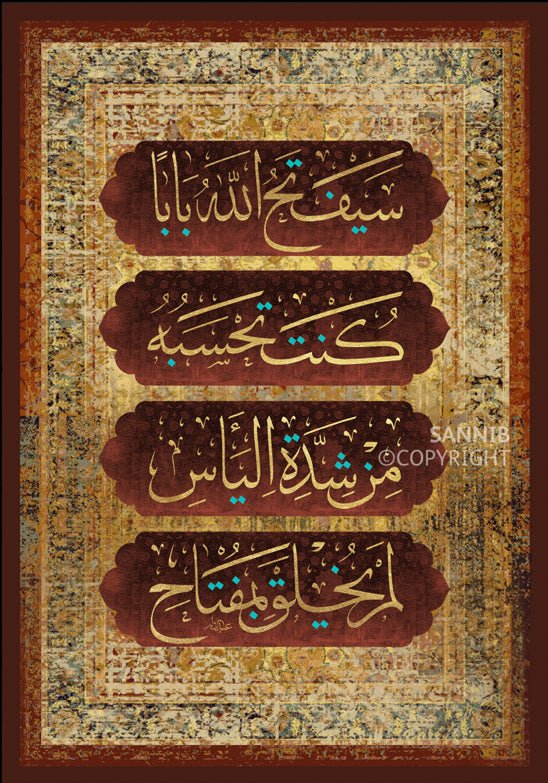 سَيَفْتَحُ اللَّهُ بَابًا
كُنْتَ تَحْسَبُهُ
مِنْ شِدَّةِ الْيَأْسِ
لَمْ يُخْلَقْ بِمِفْتَاحِ
SANNIB
©COPYRIGHT